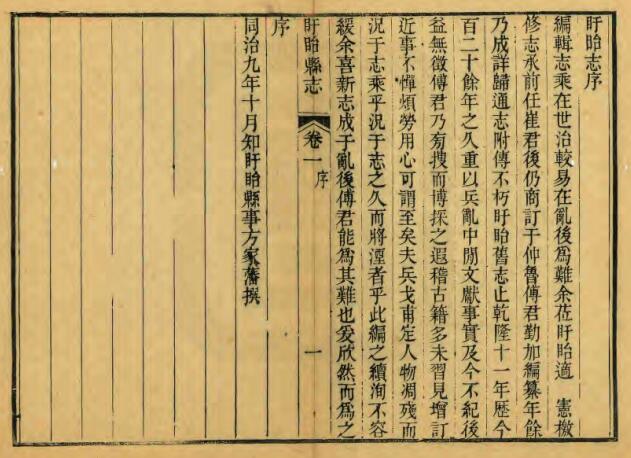 盱眙志序
編輯志乘在世治較易在亂後爲難余莅盱眙適　憲檄
修志承前任崔君後仍商訂于仲魯傅君勤加編纂年餘
乃成詳歸通志附傳不朽盱眙舊志止乾隆十一年歷今
百二十餘年之久重以兵亂中閒文獻事實及今不紀後
益無徵傅君乃旁搜而博採之遐稽古籍多未習見增訂
近事不憚煩勞用心可謂至矣夫兵戈甫定人物凋殘而
況于志乘乎況于志之久而將湮者乎此編之續洵不容
緩余喜新志成于亂後傅君能爲其難也爰欣然而爲之
盱眙縣志
卷一
序
一
序
同治九年十月知盱眙縣事方家藩撰